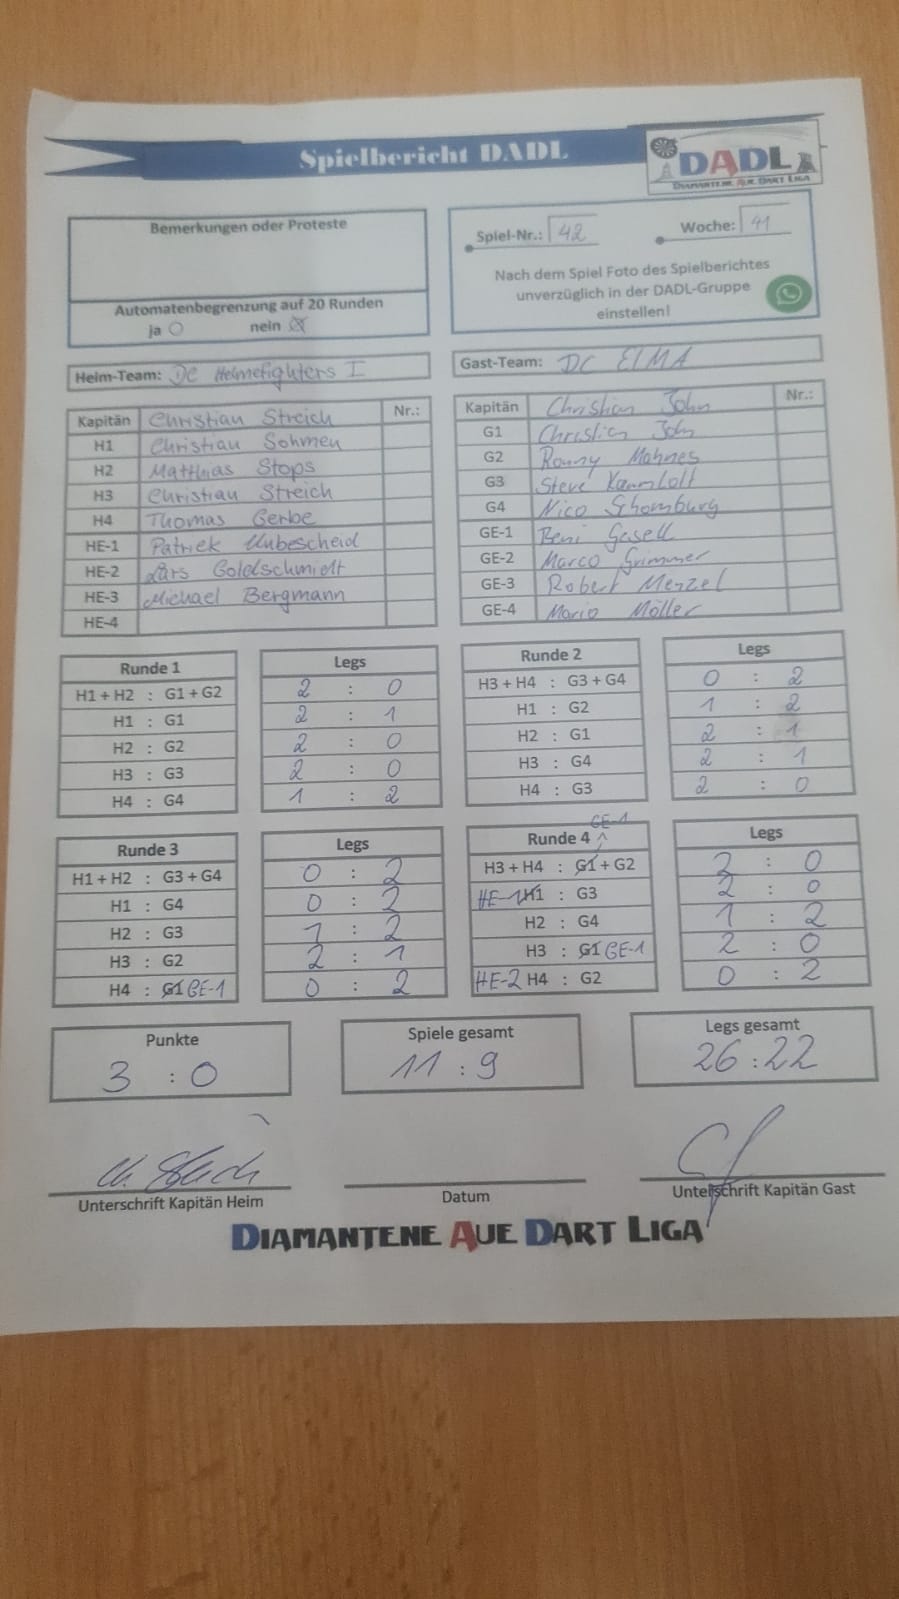 Spielbericht DADL
DADL
DIAMANTENE AUE DART LIGA
Bemerkungen oder Proteste
Automatenbegrenzung auf 20 Runden
ja nein
Spiel-Nr.: 42
Woche: 41
Nach dem Spiel Foto des Spielberichtes
unverzüglich in der DADL-Gruppe
einstellen!
Heim-Team: DC Helmefighters I
Gast-Team: DC ELMA
Kapitän Christian Streich Nr.:
H1 Christian Sohmen
H2 Matthias Stops
H3 Christian Streich
H4 Thomas Gerbe
HE-1 Patrick Unbescheid
HE-2 Lars Goldschmidt
HE-3 Michael Bergmann
HE-4
Kapitän Christian John Nr.:
G1 Christian John
G2 Ronny Mohnes
G3 Steve
G4 Nico Schomburg
GE-1 Beni Gesell
GE-2 Marco Grimmer
GE-3 Robert Menzel
GE-4 Mario Möller
Runde 1 Legs
H1 + H2 : G1 + G2 2 : 0
H1 : G1 2 : 1
H2 : G2 2 : 0
H3 : G3 2 : 0
H4 : G4 1 : 2
Runde 2 Legs
H3 + H4 : G3 + G4 0 : 2
H1 : G2 1 : 2
H2 : G1 2 : 1
H3 : G4 2 : 1
H4 : G3 2 : 0
Runde 3 Legs
H1 + H2 : G3 + G4 0 : 2
H1 : G4 0 : 2
H2 : G3 1 : 2
H3 : G2 2 : 1
H4 : G1 GE-1 0 : 2
GE-1
Runde 4 Legs
H3 + H4 : G1 + G2 2 : 0
HE-1 H1 : G3 2 : 0
H2 : G4 1 : 2
H3 : G1 GE-1 2 : 0
HE-2 H4 : G2 0 : 2
Punkte
3 : 0
Spiele gesamt
11 : 9
Legs gesamt
26 : 22
Unterschrift Kapitän Heim
Datum
Unterschrift Kapitän Gast
DIAMANTENE AUE DART LIGA